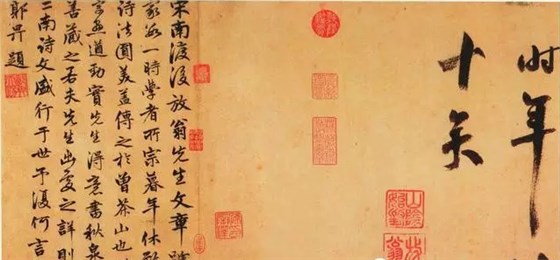 时年
十矣
宋南渡後放翁先生文章
家為一時學者所宗暮年休
詩法圓美蓋傳之於曾茶山也
遒勁實先生得意書秋泉
善藏之若夫先生出處之詳則
二南詩文盛行于世予復何言
郭畀題